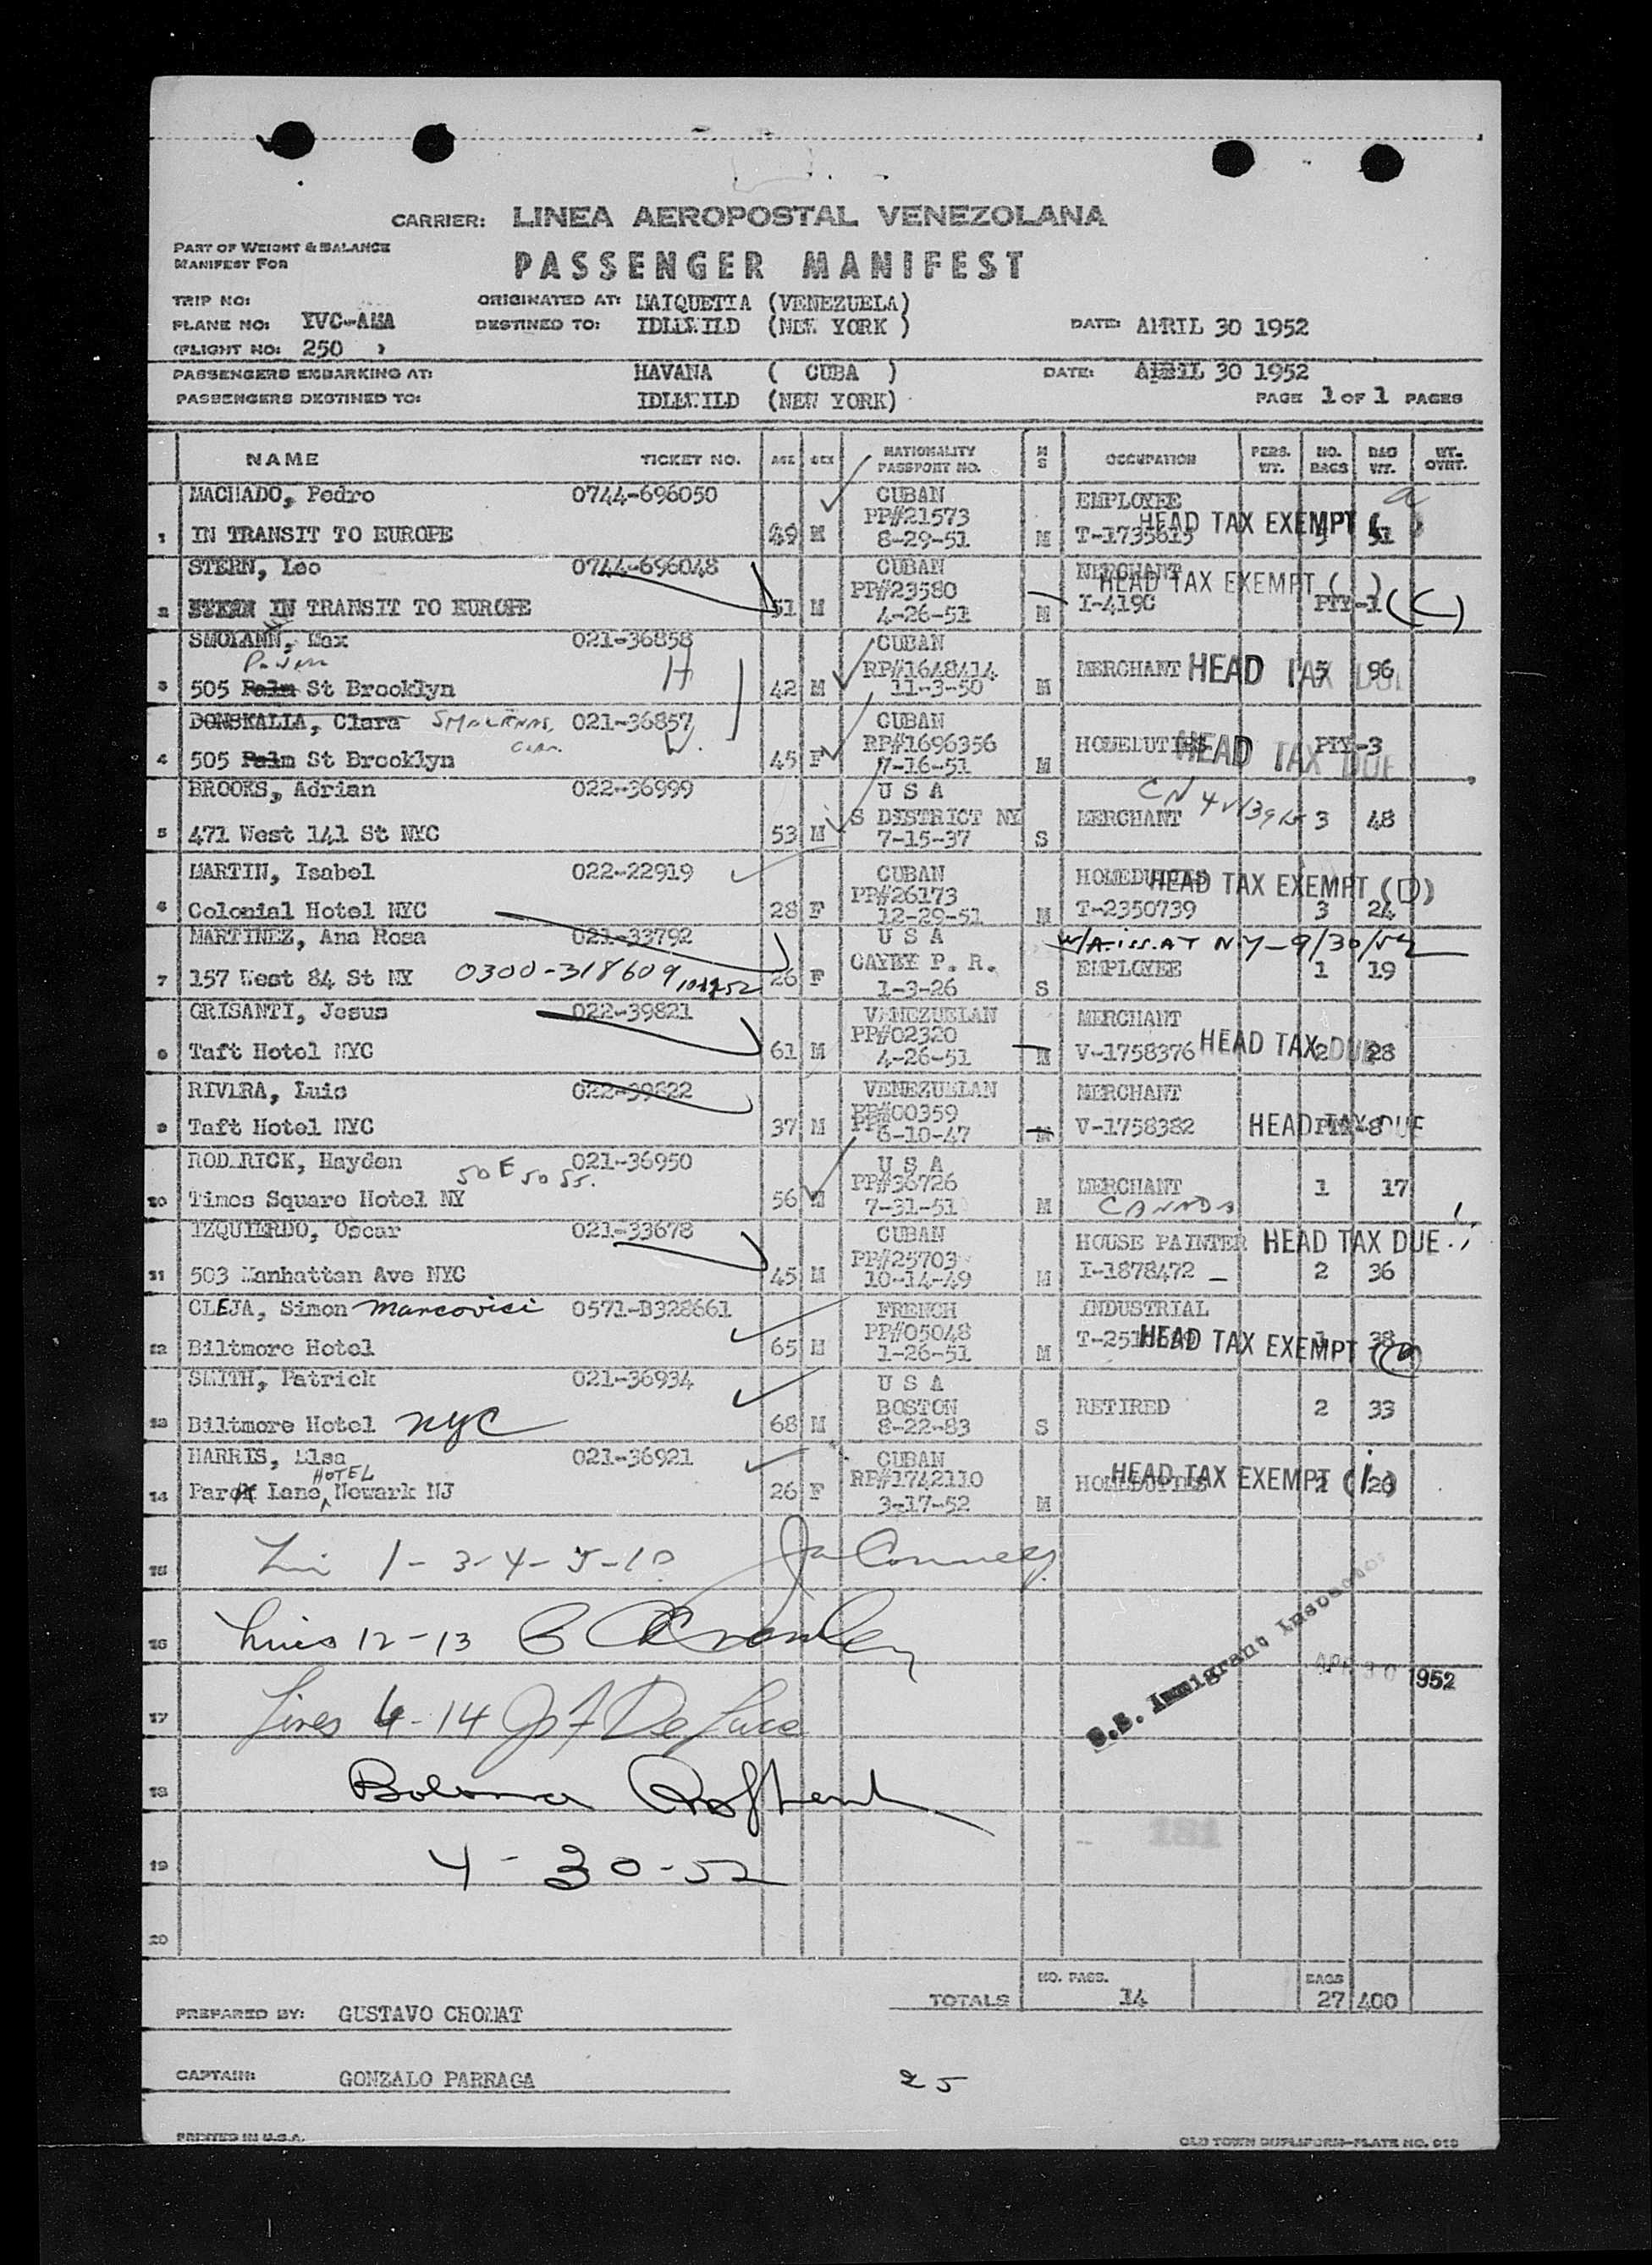 CARRIER: LINEA AEROPOSTAL VENEZOLANA
PART OF WEIGHT & BALANCE
MANIFEST FOR
PASSENGER MANIFEST
TRIP NO: ORIGINATED AT: MAIQUETIA (VENEZUELA)
PLANE NO: YVC-AMA DESTINED TO: IDLEWILD (NEW YORK ) DATE: APRIL 30 1952
(FLIGHT NO: 250 )
PASSENGERS EMBARKING AT: HAVANA ( CUBA ) DATE: APRIL 30 1952
PASSENGERS DESTINED TO: IDLEWILD (NEW YORK) PAGE 1 OF 1 PAGES
NAME TICKET NO. AGE SEX NATIONALITY PASSPORT NO. M S OCCUPATION PERS. WT. NO. BAGS BAG WT. WT. OVRT.
MACHADO, Pedro 0744-696050 CUBAN EMPLOYEE
PP#21573 HEAD TAX EXEMPT (a)
1 IN TRANSIT TO EUROPE 49 M 8-29-51 M T-1735615 3 51
STERN, Leo 0744-696048 CUBAN MERCHANT
PP#23580 HEAD TAX EXEMPT ( )
2 IN TRANSIT TO EUROPE 51 M 4-26-51 M I-419C PTY-1 (C)
SMOIANN, Max 021-36858 CUBAN
RP#1648414 MERCHANT HEAD TAX DUE 5 96
3 505 Palm St Brooklyn 42 M 11-3-50 M
DONSKALIA, Clara 021-36857 CUBAN
RP#1696356 HOMEDUTIES HEAD TAX DUE PTY-3
4 505 Palm St Brooklyn 45 F 7-16-51 M
BROOKS, Adrian 022-36999 U S A
S DISTRICT NY MERCHANT CN 3 48
5 471 West 141 St NYC 53 M 7-15-37 S
MARTIN, Isabel 022-22919 CUBAN HOMEDUTIES HEAD TAX EXEMPT (D)
PP#26173
6 Colonial Hotel NYC 28 F 12-29-51 M T-2350739 3 24
MARTINEZ, Ana Rosa 021-33792 U S A N.Y-9/30/52
CAYEY P. R. EMPLOYEE 1 19
7 157 West 84 St NY 0300-318609 26 F 1-3-26 S
GRISANTI, Jesus 022-39821 VENEZUELAN MERCHANT
PP#02320
8 Taft Hotel NYC 61 M 4-26-51 M V-1758376 HEAD TAX DUE 2 28
RIVERA, Luis 022-39822 VENEZUELAN MERCHANT
PP#00359
9 Taft Hotel NYC 37 M 6-10-47 M V-1758382 HEAD TAX DUE PTY-8
RODERICK, Haydon 021-36950 U S A
50 E 50 St. PP#36726 MERCHANT 1 17
10 Times Square Hotel NY 56 M 7-31-51 M CANADA
IZQUIERDO, Oscar 021-33678 CUBAN HOUSE PAINTER HEAD TAX DUE
PP#25703
11 503 Manhattan Ave NYC 45 M 10-14-49 M I-1878472 2 36
CLEJA, Simon Marcovici 0571-B328661 FRENCH INDUSTRIAL
PP#05048 HEAD TAX EXEMPT (a)
12 Biltmore Hotel 65 M 1-26-51 M 1 38
SMITH, Patrick 021-36934 U S A
BOSTON RETIRED 2 33
13 Biltmore Hotel NYC 68 M 8-22-83 S
HARRIS, Elsa 021-36921 CUBAN
HOTEL RP#1742110 HOMEDUTIES HEAD TAX EXEMPT (i) 2 20
14 Park Lane, Newark NJ 26 F 3-17-52 M
15 1-3-4-5-10
16 Lines 12-13
U.S. Immigrant Inspector
APR 30 1952
17 Lines 6-14 De Luca
18
181
19 4-30-52
20
NO. PASS. BAGS
TOTALS 14 27 400
PREPARED BY: GUSTAVO CHOMAT
CAPTAIN: GONZALO PARRAGA
25
PRINTED IN U.S.A. OLD TOWN DUPLIFORM-PLATE NO. 910